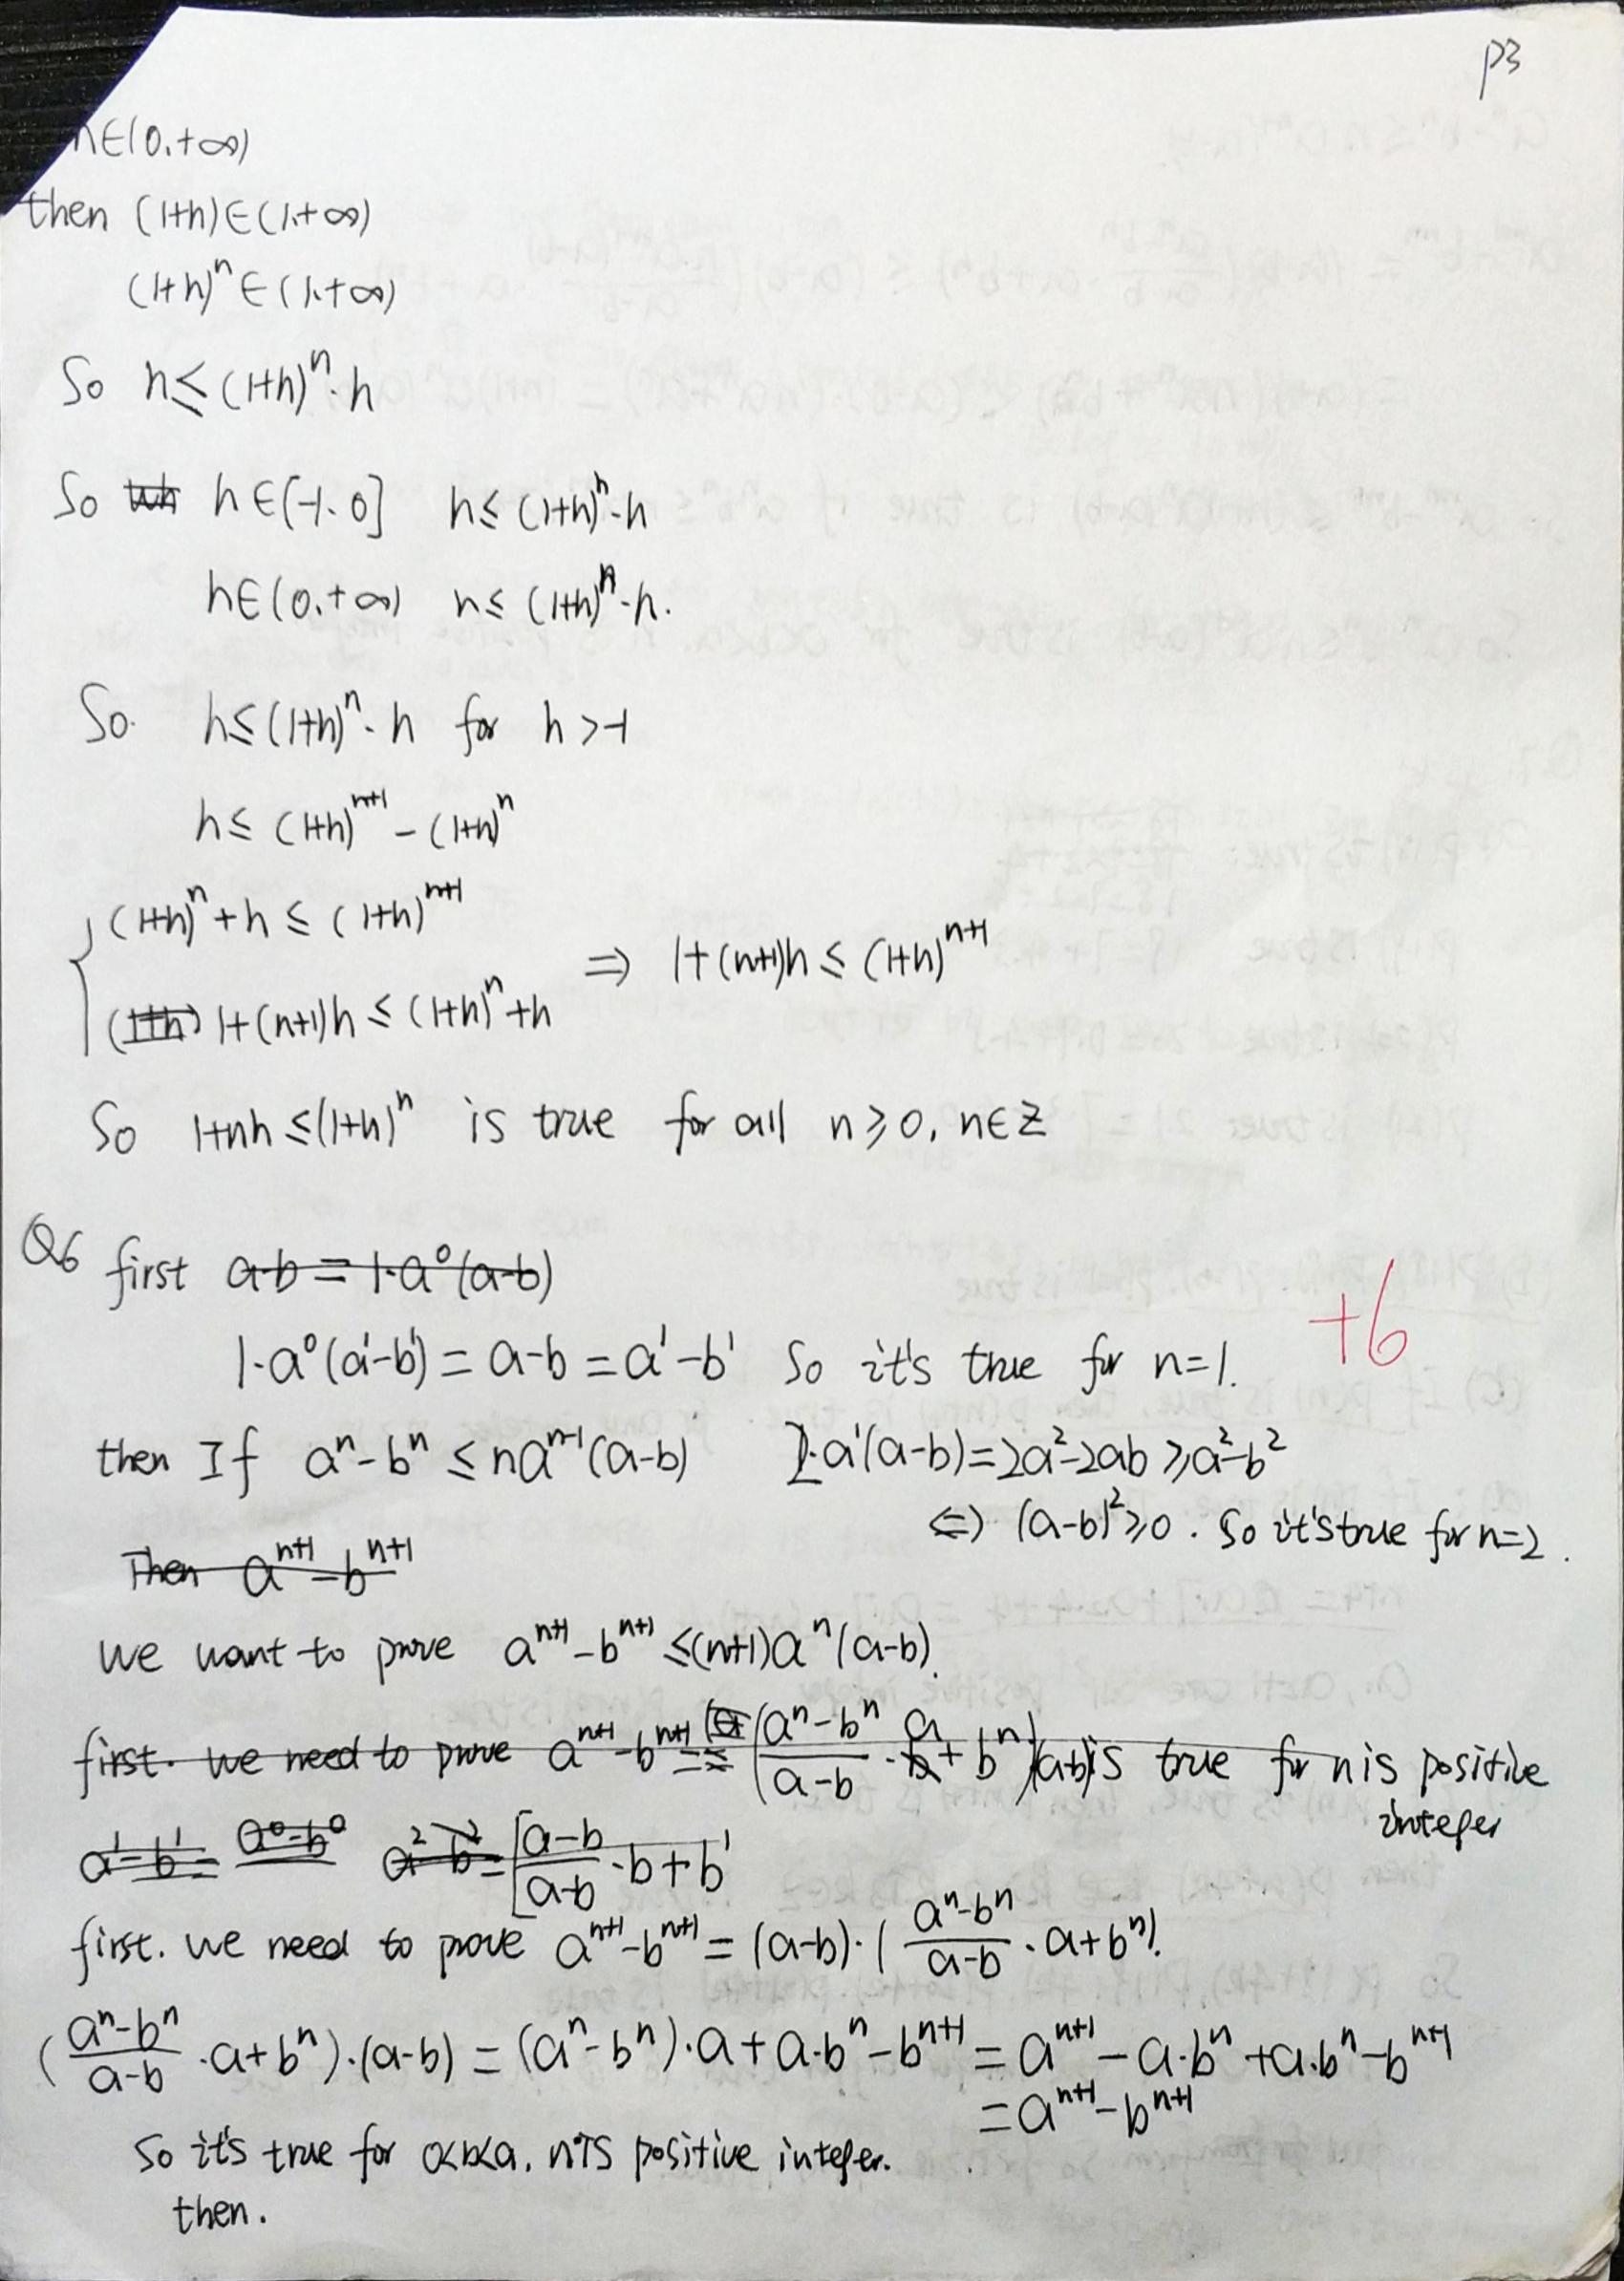 p3
h∈(0,+∞)
then (1+h)∈(1,+∞)
(1+h)^n ∈(1,+∞)
So h≤(1+h)^n·h
So h∈(-1,0] h≤(1+h)^n·h
h∈(0,+∞) h≤(1+h)^n·h.
So. h≤(1+h)^n·h for h>-1
h≤(1+h)^{n+1}-(1+h)^n
(1+h)^n+h≤(1+h)^{n+1}
⇒ 1+(n+1)h≤(1+h)^{n+1}
(1+h) 1+(n+1)h≤(1+h)^n+h
So 1+nh≤(1+h)^n is true for all n≥0, n∈Z
Q6 first a-b=1·a^0(a-b)
+6
1·a^0(a^1-b^1)=a-b=a^1-b^1 So it's true for n=1.
then If a^n-b^n≤na^{n-1}(a-b) 2·a^1(a-b)=2a^2-2ab≥a^2-b^2
⇔ (a-b)^2≥0. So it's true for n=2.
Then a^{n+1}-b^{n+1}
we want to prove a^{n+1}-b^{n+1}≤(n+1)a^n(a-b).
first. we need to prove a^{n+1}-b^{n+1}=(\frac{a^n-b^n}{a-b}·a+b^n)(a-b) is true for n is positive
integer
a^1-b^1= a^0-b^0 a^2-b^2=[\frac{a-b}{a-b}·b+b^1
first. we need to prove a^{n+1}-b^{n+1}=(a-b)·(\frac{a^n-b^n}{a-b}·a+b^n).
(\frac{a^n-b^n}{a-b}·a+b^n)·(a-b)=(a^n-b^n)·a+a·b^n-b^{n+1}=a^{n+1}-a·b^n+a·b^n-b^{n+1}
=a^{n+1}-b^{n+1}
So it's true for 0<b<a, n is positive integer.
then.